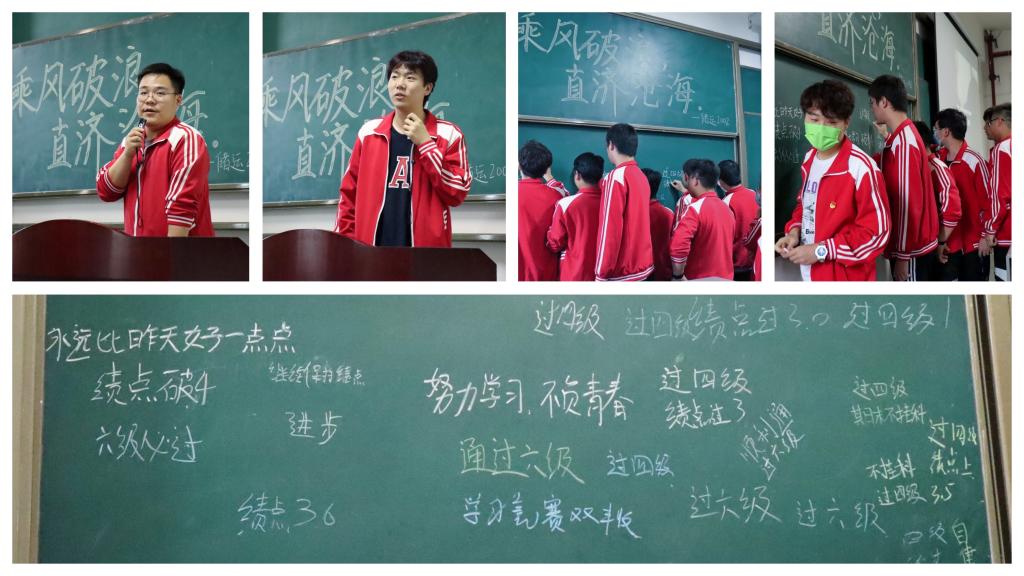 乘风破浪
直济
乘风破浪
直济
乘风破浪
直济沧海。
直济沧海
永远比昨天好一点点
绩点破4
继续保持绩点
六级必过
进步
绩点3.6
过四级
过四级
绩点过3.0
过四级
努力学习,不负青春
过四级
绩点过3
顺利通
过六级
通过六级
过四级
学习竞赛双丰收
过六级
过六级
过四级
期末不挂科
过四级
绩点上
3.5
不挂科
过四级
四级